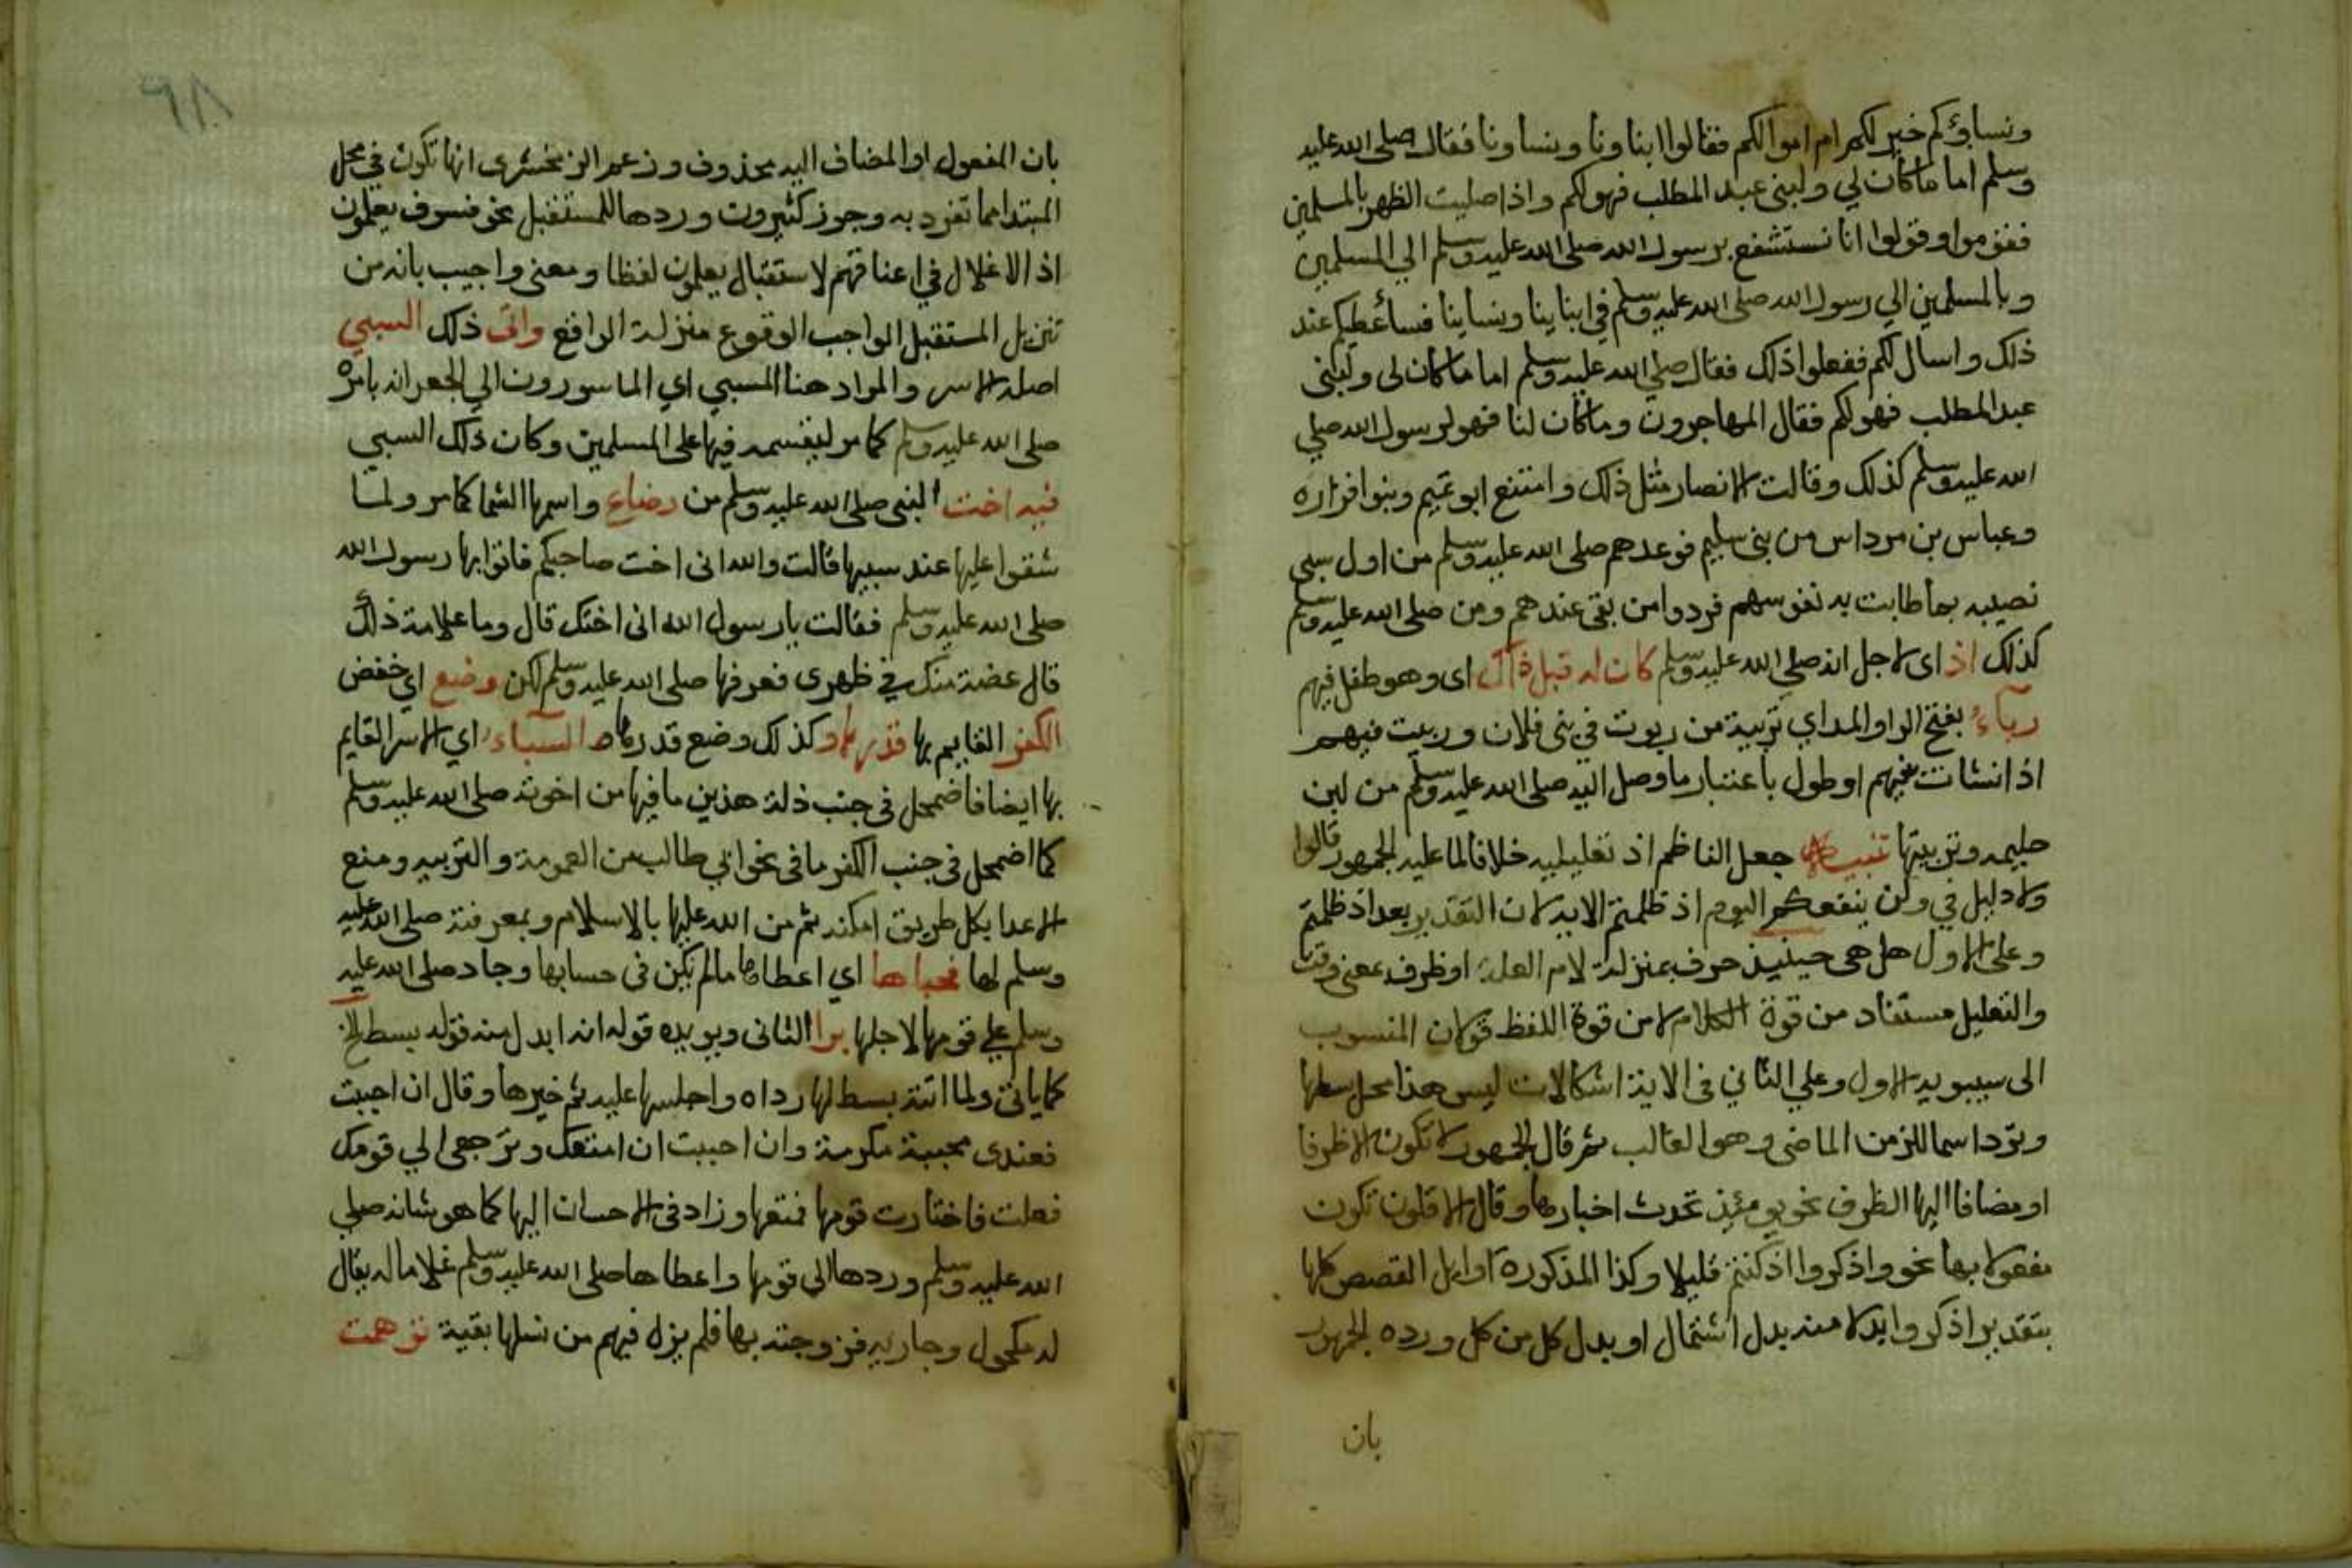 ونساؤكم خير لكم ام اموالكم فقالوا ابناونا ونساونا فقال صلى الله عليه
وسلم اما ما كان لي ولبني عبد المطلب فهو لكم واذا صليت الظهر بالمسلمين
فقوموا وقولوا انا نستشفع برسول الله صلى الله عليه وسلم الي المسلمين
وبالمسلمين الي رسول الله صلى الله عليه وسلم في ابناينا ونساينا فسأعطيكم عند
ذلك واسال لكم ففعلوا ذلك فقال صلي الله عليه وسلم اما ما كان لى ولبنى
عبد المطلب فهو لكم فقال المهاجرون وما كان لنا فهو لرسول الله صلي
الله عليه وسلم كذلك وقالت الانصار مثل ذلك وامتنع ابو تميم وبنوا فزاره
وعباس بن مرداس من بنى سليم فوعدهم صلى الله عليه وسلم من اول سبى
نصيبه بما طابت به نفوسهم فردوا من بقى عندهم ومن صلى الله عليه وسلم
كذلك اذ اى لاجل انه صلي الله عليه وسلم كان له قبل ذلك اى وهو طفل فيهم
رباء بفتح الراو المد اي تربية من ربوت في بنى فلان وربيت فيهم
اذا نشات فيهم او طول باعتبار ما وصل اليه صلى الله عليه وسلم من لبن
حليمه وتربيتها تنبيه جعل الناظم اذ تعليليه خلافا لما عليه الجمهور قالوا
ولا دليل في ولن ينفعكم اليوم اذ ظلمتم الايه لان التقدير بعد اذ ظلمتم
وعلى الاول هل هى حينيذ حرف بمنزلة لام العلة او ظرف بمعنى وقت
والتعليل مستفاد من قوة الكلام لا من قوة اللفظ قولان المنسوب
الى سيبويه الاول وعلي الثاني في الاية اشكالات ليس هذا محل بسطها
وترد اسما للزمن الماضى وهو الغالب ثم قال الجمهور لا تكون الا ظرفا
او مضافا اليها الظرف نحو يومئذ تحدث اخبارها وقال الاقلون تكون
مفعولا بها نحو واذكروا اذ كنتم قليلا وكذا المذكورة اوايل القصص كلها
بتقدير اذكر وابدلا منه بدل اشتمال او بدل كل من كل ورده الجمهور
بان
٩٨
بان المفعول او المضاف اليه محذوف وزعم الزمخشرى انها تكون في محل
المبتدا مما تفرد به وجوز كثيرون ورودها للمستقبل نحو فسوف يعلمون
اذ الاغلال في اعناقهم لاستقبال يعلمون لفظا ومعنى واجيب بانه من
تنزيل المستقبل الواجب الوقوع منزلة الواقع واتى ذلك السبي
اصله الاسر والمراد هنا المسبي اي الماسورون الي الجعرانه بامره
صلى الله عليه وسلم كما مر ليقسمه فيها على المسلمين وكان ذلك السبي
فيه اخت النبي صلى الله عليه وسلم من رضاع واسمها الشما كما مر ولما
شقوا عليها عند سبيها قالت والله انى اخت صاحبكم فاتوا بها رسول الله
صلى الله عليه وسلم فقالت يا رسول الله انى اختك قال وما علامة ذلك
قال عضة منك في ظهرى فعرفها صلى الله عليه وسلم لكن وضع اي خفض
الكفر القايم بها قدرها وكذلك وضع قدرها السباء اي الاسر القايم
بها ايضا فاضمحل في جنب ذلة هذين ما فيها من اخوته صلى الله عليه وسلم
كما اضمحل في جنب الكفر ما في نحو ابي طالب من العمومة والتربيه ومنع
الاعدا بكل طريق امكنه ثم من الله عليها بالاسلام وبمعرفته صلى الله عليه
وسلم لها فحباها اي اعطاها ما لم يكن في حسابها وجاد صلى الله عليه
وسلم علي قومها لاجلها برا الثانى ويويده قوله انه ابدل منه قوله بسط الخ
كما ياتى ولما اتته بسط لها رداه واجلسها عليه ثم خيرها وقال ان احببت
فعندى محببة مكرمة وان احببت ان امتعك وترجعي الي قومك
فعلت فاختارت قومها فمتعها وزاد في الاحسان اليها كما هو شانه صلي
الله عليه وسلم وردها الى قومها واعطاها صلى الله عليه وسلم غلاما له يقال
له مكحول وجاريه فزوجته بها فلم يزل فيهم من نسلها بقية توهمت